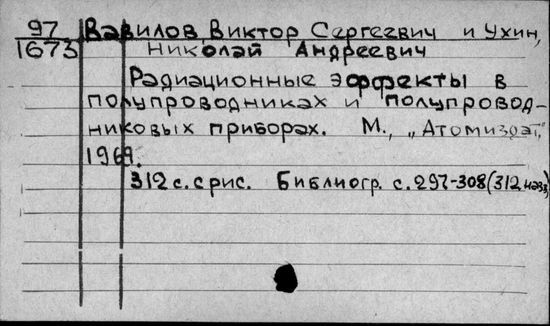 97 Вавилов, Виктор Сергеевич и Ухин,
1673 Николай Андреевич
Радиационные эффекты в
полупроводниках и полупровод-
никовых приборах. М., „Атомиздат",
1969.
312 с. с рис. Библиогр. с. 297-308 (312 назв)